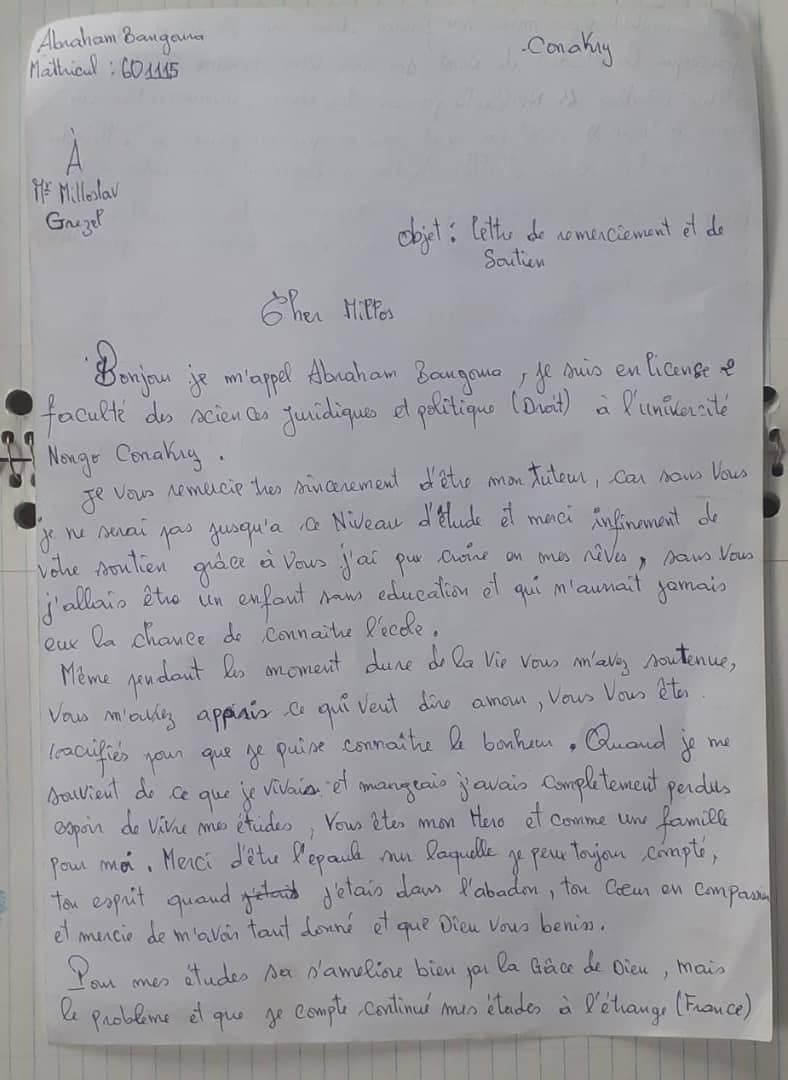 Abraham Bangoura
Mathricul : 601115
-Conakry
À
Mr Milloslav
Grezel
objet : lettre de remerciement et de
Soutien
Cher Millos
Bonjour je m'appel Abraham Bangoura, je suis en license 2
faculté des sciences juridiques et politique (Droit) à l'univercité
Nongo Conakry.
je vous remercie tres sincerement d'être mon tuteur, car sans Vous
je ne serai pas jusqu'a ce Niveau d'étude et merci infinement de
votre soutien grâce à Vous j'ai pur croire en mes rêves, sans Vous
j'allais être un enfant sans education et qui n'aurrait jamais
eux la chance de connaitre l'ecole.
Même pendant les moment dure de la Vie vous m'avez soutenue,
Vous m'aviez appris ce qui veut dire amour, Vous Vous êtes
sacrifiés pour que je puise connaître le bonheur. Quand je me
souvient de ce que je vivais et mangeais j'avais completement perdus
espoir de vivre mes études, Vous êtes mon Hero et comme une famille
pour moi. Merci d'être l'epaule sur laquelle je peux toujour compté,
ton esprit quand j'etais j'etais dans l'abadon, ton Cœur en compassion
et mercie de m'avoir tant donné et que Dieu Vous beniss.
Pour mes études sa s'ameliore bien par la Gâce de Dieu, mais
le probleme et que je compte continué mes études à l'étrange (France)